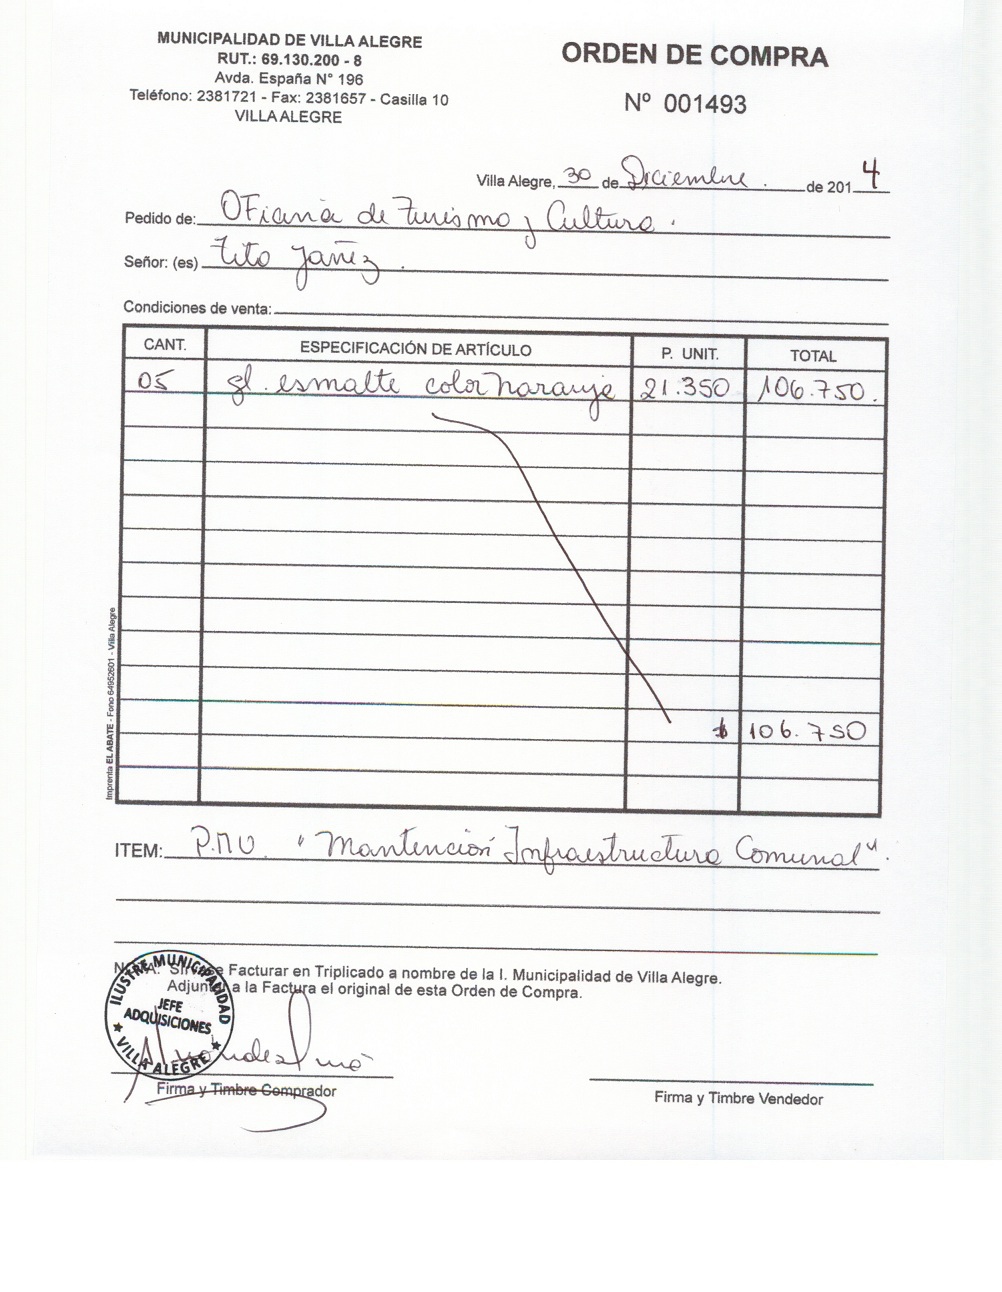 MUNICIPALIDAD DE VILLA ALEGRE
RUT.: 69.130.200 - 8
Avda. España N° 196
Teléfono: 2381721 - Fax: 2381657 - Casilla 10
VILLA ALEGRE
ORDEN DE COMPRA
Nº 001493
Villa Alegre, 30 de Diciembre. de 2014
Pedido de: Oficina de Turismo y Cultura.
Señor: (es) Tito Yañez.
Condiciones de venta:
CANT. ESPECIFICACIÓN DE ARTÍCULO P. UNIT. TOTAL
05 gl. esmalte color naranja 21.350 106.750.
$ 106.750
Imprenta EL ABATE - Fono 64952601 - Villa Alegre
ITEM: P.M.U. "Mantención Infraestructura Comunal".
NOTA: Sírvase Facturar en Triplicado a nombre de la I. Municipalidad de Villa Alegre.
Adjuntar a la Factura el original de esta Orden de Compra.
ILUSTRE MUNICIPALIDAD
JEFE
ADQUISICIONES
VILLA ALEGRE
Firma y Timbre Comprador
Firma y Timbre Vendedor